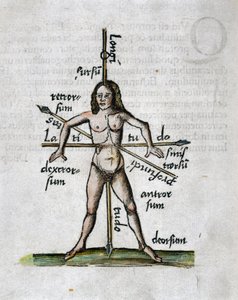 Longi
sursū
retror
sum
La ti tu do
sinis
trorsū
profundi
dextror
sum
antror
sum
tudo
deorsum